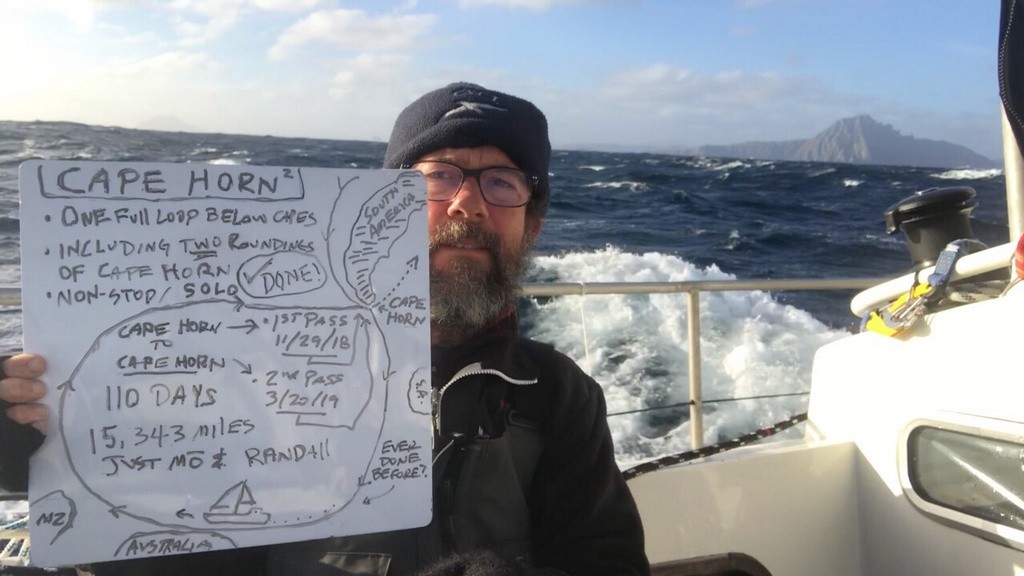 CAPE HORN²
• ONE FULL LOOP BELOW CAPES
• INCLUDING TWO ROUNDINGS
OF CAPE HORN
• NON-STOP/SOLO
✓ DONE!
SOUTH
AMERICA
CAPE
HORN
CAPE HORN → • 1ST PASS
11/29/18
TO
CAPE HORN
• 2ND PASS
3/20/19
110 DAYS
15,343 MILES
JUST MŌ & RANDALL
EVER
DONE
BEFORE?
NZ
AUSTRALIA